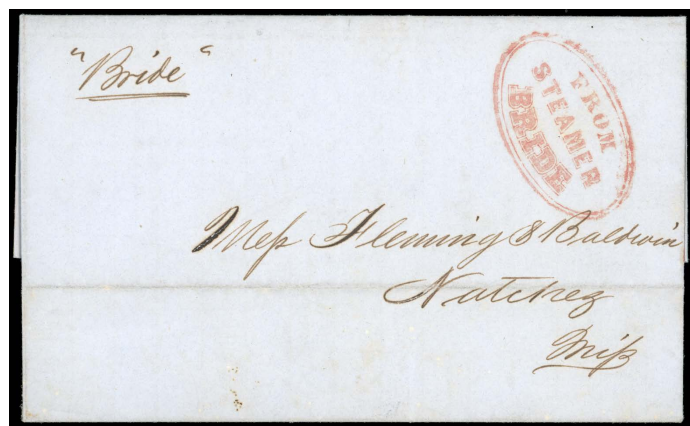 "Bride"
FROM
STEAMER
BRIDE
Mess Fleming & Baldwin
Natchez
Miss